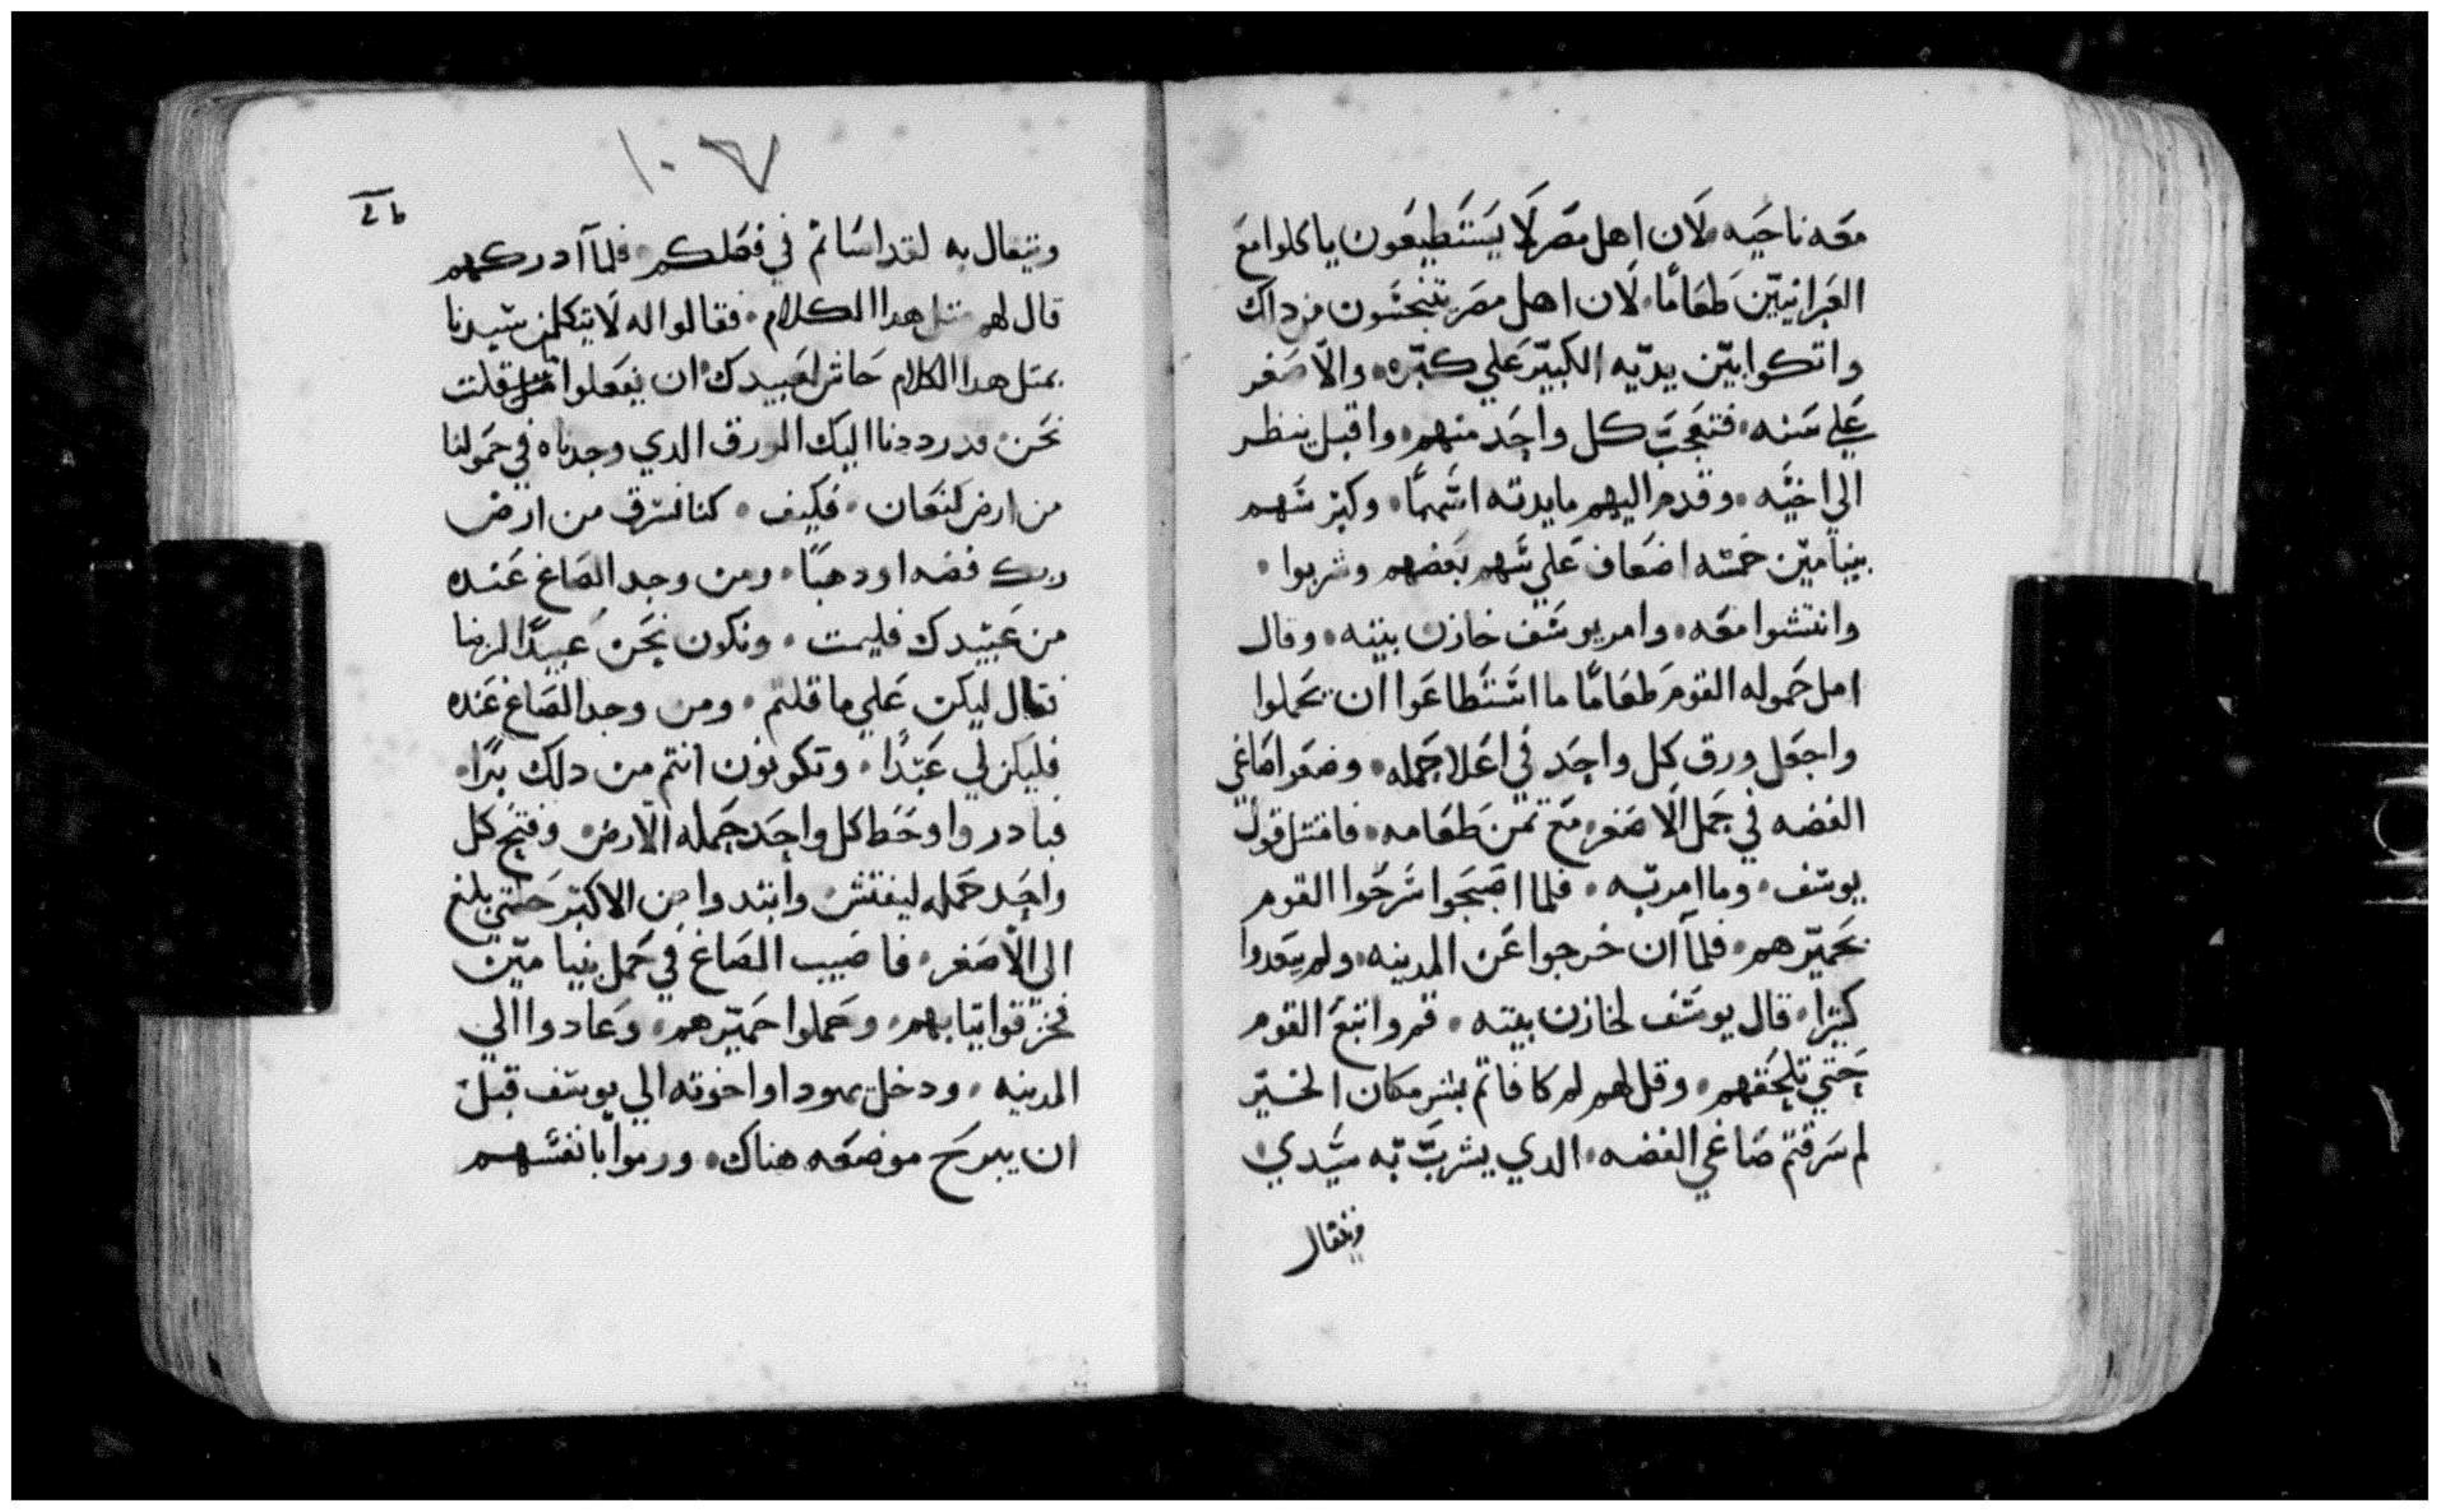 معه ناحيه لان اهل مصر لا يستطيعون ياكلوا مع
العبرانيين طعامًا. لان اهل مصر يتنجسون من داك
واتكوا بين يديه الكبير علي كبره. والاصغر
علي سنه. فتعجب كل واحد منهم. واقبل ينظر
الي اخيه. وقدم اليهم مايدته اسهمًا. وكبر سهم
بنيامين خمسه اضعاف علي سهم بعضهم وشربوا.
وانتشوا معه. وامر يوسف خازن بيته. وقال
امل حموله القوم طعامًا ما استطاعوا ان يحملوا
واجعل ورق كل واحد في اعلا حمله. وضعوا صاغي
الفضه في حمل الاصغر مع تمن طعامه. فامتتل قول
يوسف. وما امر به. فلما اصبحوا سرحوا القوم
بحميرهم. فلما ان خرجوا عن المدينه. ولم يبعدوا
كبيرا. قال يوسف لخازن بيته. قم واتبع القوم
حتي تلحقهم. وقل لهم لم كافاتم بشر مكان الخير
لم سرقتم صاغي الفضه. الدي يشرب به سيدي
ويتفال
١٠٧
ويتفال به لقد اساتم في فعلكم. فلما ادركهم
قال لهم متل هدا الكلام. فقالوا له لا يتكلمن سيدنا
بمتل هدا الكلام حاش لعبيدك ان يفعلوا قلت
نحن قد رددنا اليك الورق الدي وجدناه في حمولنا
من ارض كنعان. فكيف. كنا نسرق من ارض
ربك فضه او دهبًا. ومن وجد الصاغ عنده
من عبيدك فليمت. ونكون نحن عبيدًا لربنا
فقال ليكن علي ما قلتم. ومن وجد الصاغ عنده
فليكن لي عبدًا. وتكونون انتم من دلك برًا.
فبادروا وحط كل واحد حمله الارض. وفتح كل
واحد حمله ليفتش وابتدوا من الاكبر حتي بلغ
الى الاصغر. فاصيب الصاغ في حمل بنيامين
فخزقوا تيابهم. وحملوا حميرهم. وعادوا الي
المدينه. ودخل يهودا واخوته الي يوسف قبل
ان يبرح موضعه هناك. ورموا بانفسهم